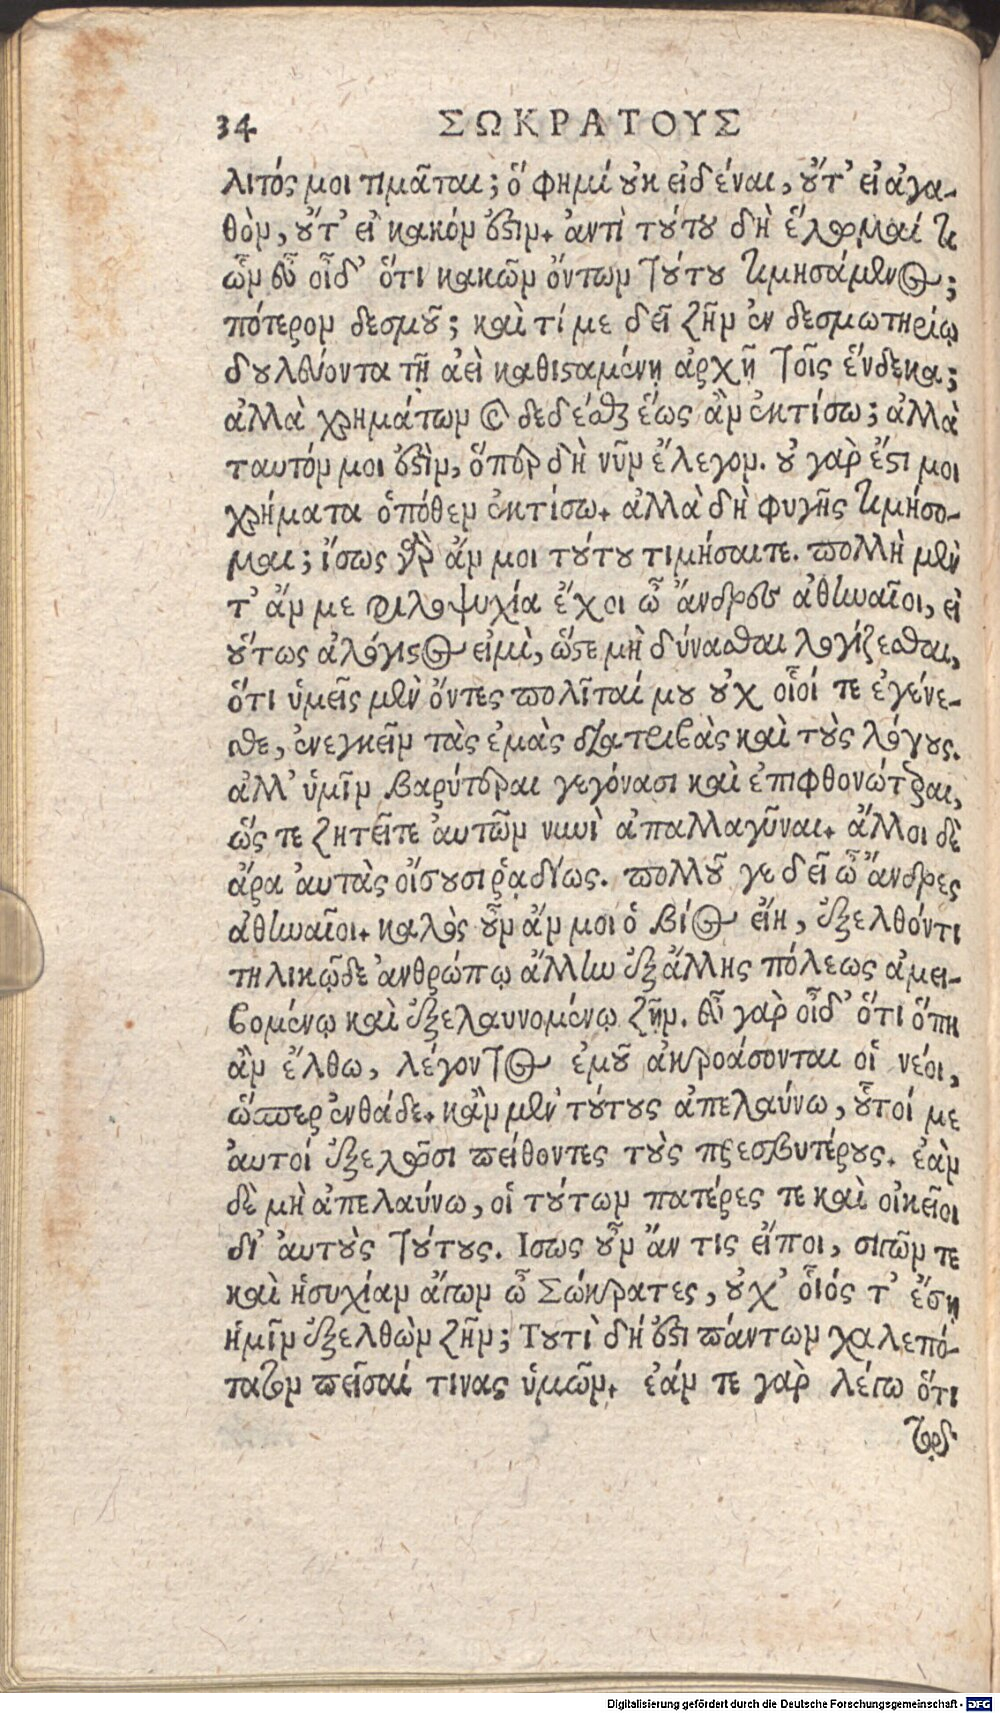 34 ΣΩΚΡΑΤΟΥΣ
λιτός μοι τιμᾶται; ὅ φημί ουκ ειδέναι, ούτ' εἰ ἀγα-
θὸμ, ούτ' εἰ κακόμ ὅστιμ. ἀντὶ τούτου δὴ ἕλωμαί τι
ὧμ εὖ οἶδ' ὅτι κακῶμ ὄντωμ τούτου τιμησάμενος;
πότερομ δεσμοῦ; καὶ τί με δεῖ ζῆμ ἐν δεσμωτηρίῳ
δουλεύοντα τῇ ἀεὶ καθισταμένῃ ἀρχῇ τοῖς ἕνδεκα;
ἀλλὰ χρημάτωμ καὶ δεδέσθαι ἕως ἂμ ἐκτίσω; ἀλλὰ
ταυτόμ μοι ἐστὶμ, ὅπερ δὴ νῦμ ἔλεγομ. οὐ γὰρ ἔστι μοι
χρήματα ὁπόθεμ ἐκτίσω. ἀλλὰ δὴ φυγῆς τιμήσο-
μαι; ἴσως γὰρ ἄμ μοι τούτου τιμήσαιτε. πολλὴ μεν
τ' ἄμ με φιλοψυχία ἔχοι ὦ ἄνδρες ἀθηναῖοι, εἰ
οὕτως ἀλόγιστος εἰμὶ, ὥστε μὴ δύνασθαι λογίζεσθαι,
ὅτι ὑμεῖς μὲν ὄντες πολῖταί μου οὐχ οἷοί τε ἐγένε-
σθε, ἐνεγκεῖμ τὰς ἐμὰς διατριβὰς καὶ τοὺς λόγους.
ἀλλ' ὑμῖμ βαρύτεραι γεγόνασι καὶ ἐπιφθονώτεραι,
ὥς τε ζητεῖτε ἀυτῶμ νυνὶ ἀπαλλαγῦναι. ἄλλοι δὲ
ἄρα ἀυτὰς οἴσουσι ῥᾳδίως. πολλοῦ γε δεῖ ὦ ἄνδρες
ἀθηναῖοι. καλὸς οὖμ ἄμ μοι ὁ βίος εἴη, ἐξελθόντι
τηλικῷδε ἀνθρώπῳ ἄλλην ἐξ ἄλλης πόλεως ἀμει-
βομένῳ καὶ ἐξελαυνομένῳ ζῇμ. εὖ γὰρ οἶδ' ὅτι ὅπη
ἂμ ἔλθω, λέγοντος ἐμοῦ ἀκροάσονται οἱ νέοι,
ὥσπερ ἐνθάδε. κἂμ μὲν τούτους ἀπελαύνω, οὗτοί με
ἀυτοί ἐξελῶσι πείθοντες τοὺς πρεσβυτέρους. ἐὰμ
δὲ μὴ ἀπελαύνω, οἱ τούτωμ πατέρες τε καὶ οἰκεῖοι
δι' ἀυτοὺς τούτους. Ισως οὖμ ἄν τις εἴποι, σιγῶμ τε
καὶ ἡσυχίαμ ἄγωμ ὦ Σώκρατες, οὐχ' οἷός τ' ἔσῃ
ἡμῖμ ἐξελθὼμ ζῆμ; Τουτὶ δή ἐστι πάντωμ χαλεπό-
τατομ πεῖσαί τινας ὑμῶμ. ἐάμ τε γὰρ λέγω ὅτι
τῷ
Digitalisierung gefördert durch die Deutsche Forschungsgemeinschaft - DFG